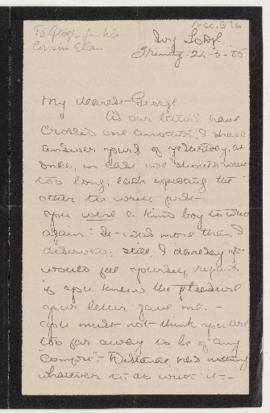 Acc. 876
To George from his
Cousin Ellen
Ivy Lodge
Friday 21-3-85
My dearest George
As our letters have
crossed one another, I shall
answer yours of yesterday at
once, in case we should wait
too long; each expecting the
other to write first.
you were a kind boy to write
again: It was more than I
deserved: still, I daresay you
would feel yourself repaid
if you knew the pleasure
your letter gave me. -
you must not think you are
too far away to be of "any
comfort" - Distance has nothing
whatever to do with it: -